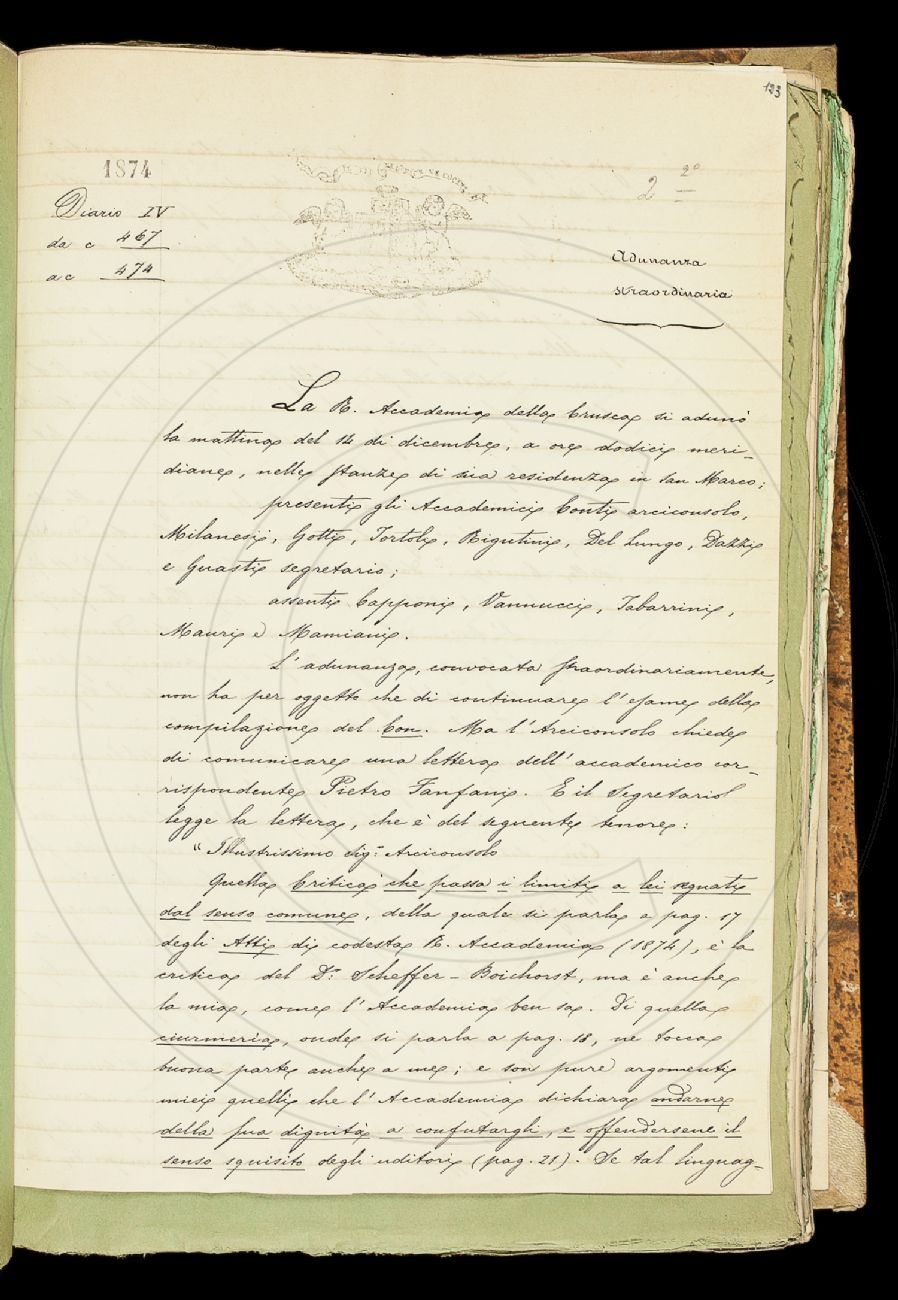 193
1874
2 2º
Diario IV
da c 467
a c 474
Adunanza
straordinaria
La R. Accademia della Crusca si adunò
la mattina del 14 di dicembre, a ore dodici meri-
diane, nelle stanze di sua residenza in San Marco;
presenti gli Accademici Conti arciconsolo,
Milanesi, Gotti, Tortoli, Rigutini, Del Lungo, Dazzi
e Guasti segretario;
assenti Capponi, Vannucci, Tabarrini,
Mauri e Mamiani.
L'adunanza, convocata straordinariamente,
non ha per oggetto che di continuare l'esame della
compilazione del Con. Ma l'Arciconsolo chiede
di comunicare una lettera dell'accademico cor-
rispondente Pietro Fanfani. E il Segretario
legge la lettera, che è del seguente tenore:
"Illustrissimo Sig.r Arciconsolo
Quella Critica che passa i limiti a lei segnati
dal senso comune, della quale si parla a pag. 17
degli Atti di codesta R. Accademia (1874), è la
critica del D.r Scheffer-Boichorst, ma è anche
la mia, come l'Accademia ben sa. Di quella
ciurmeria, onde si parla a pag. 18, ne tocca
buona parte anche a me; e son pure argomenti
miei quelli che l'Accademia dichiara andarne
della sua dignità a confutargli, e offendersene il
senso squisito degli uditori (pag. 21). Se tal linguag-